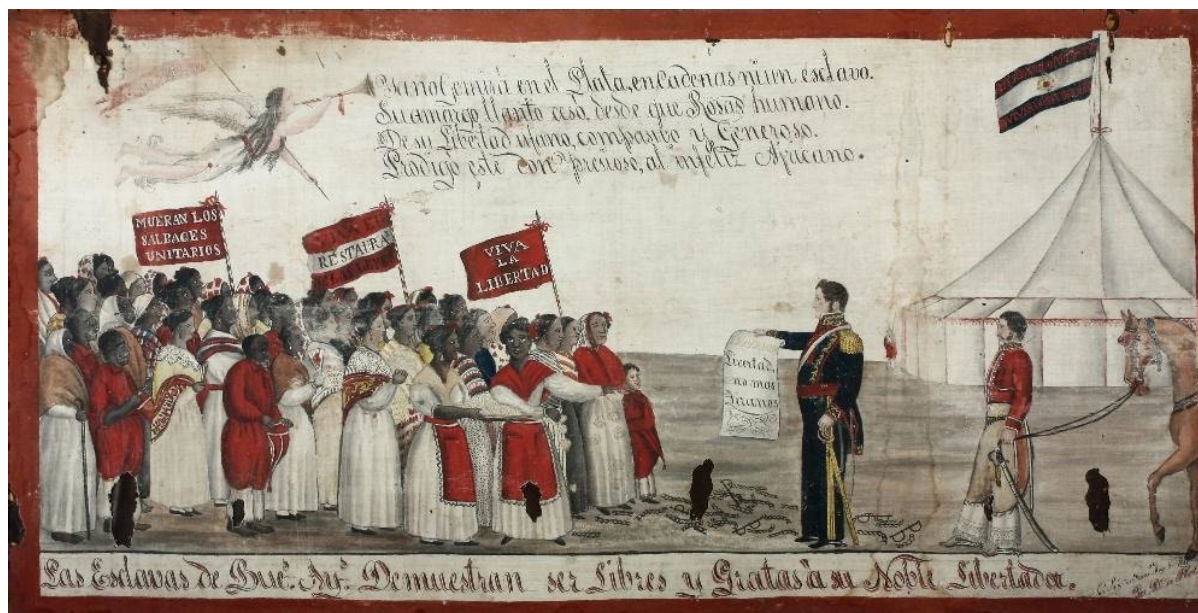 Ya no Gemirá en el Plata, en Cadenas ni un esclavo.
Su amargo llanto ceso, desde que Rosas humano.
De su Libertad ufano, compasibo y Generoso.
Prodigó este don presioso, al infeliz Africano.
MUERAN LOS
SALBAGES
UNITARIOS
VIVA EL
RESTAURA
VIVA
LA
LIBERTAD
Livertad,
no mas
tiranos
Las Esclavas de Bue.s Ay.s Demuestran ser Libres y Gratas à su Noble Libertador.